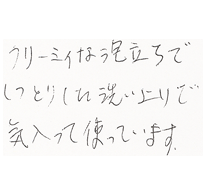 クリーミィな泡立ちで
しっとりした洗い上りで
気入って使っています。